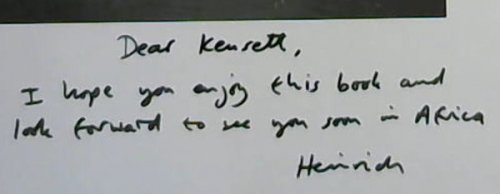 Dear Kensett,
I hope you enjoy this book and
look forward to see you soon in Africa
Heinrich